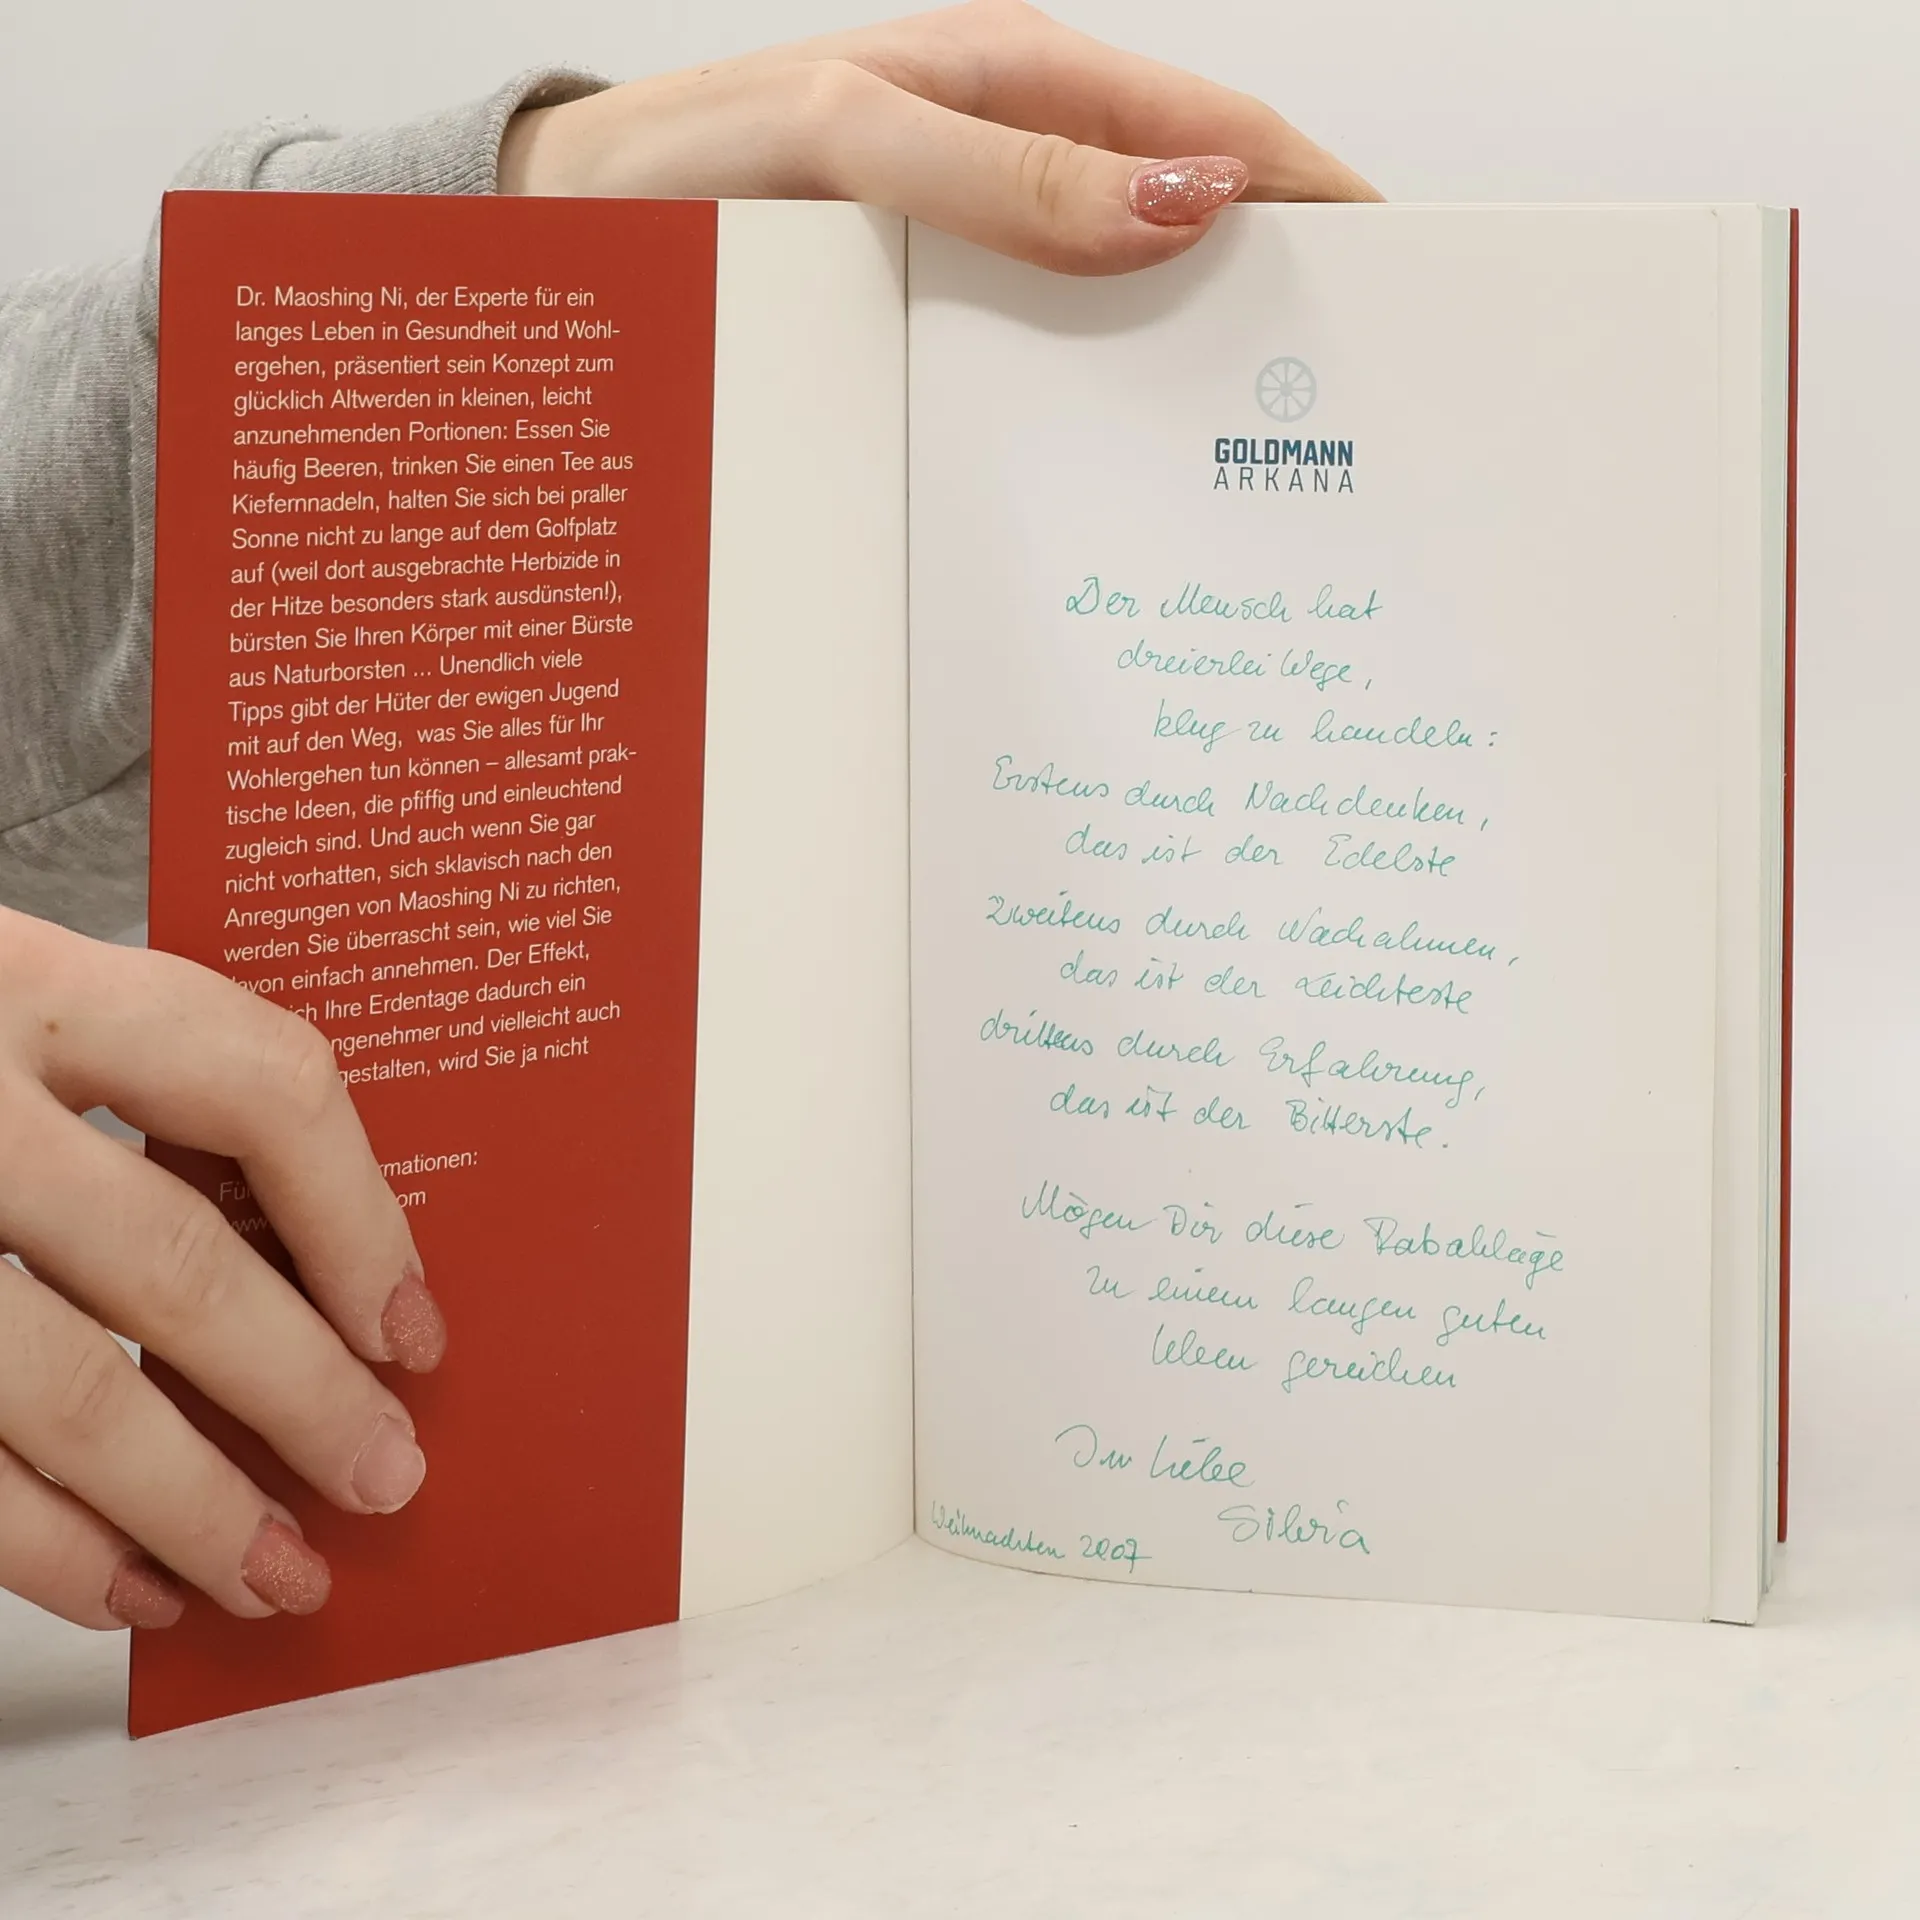 Dr. Maoshing Ni, der Experte für ein
langes Leben in Gesundheit und Wohl-
ergehen, präsentiert sein Konzept zum
glücklich Altwerden in kleinen, leicht
anzunehmenden Portionen: Essen Sie
häufig Beeren, trinken Sie einen Tee aus
Kiefernnadeln, halten Sie sich bei praller
Sonne nicht zu lange auf dem Golfplatz
auf (weil dort ausgebrachte Herbizide in
der Hitze besonders stark ausdünsten!),
bürsten Sie Ihren Körper mit einer Bürste
aus Naturborsten ... Unendlich viele
Tipps gibt der Hüter der ewigen Jugend
mit auf den Weg, was Sie alles für Ihr
Wohlergehen tun können – allesamt prak-
tische Ideen, die pfiffig und einleuchtend
zugleich sind. Und auch wenn Sie gar
nicht vorhatten, sich sklavisch nach den
Anregungen von Maoshing Ni zu richten,
werden Sie überrascht sein, wie viel Sie
avon einfach annehmen. Der Effekt,
ich Ihre Erdentage dadurch ein
ngenehmer und vielleicht auch
gestalten, wird Sie ja nicht
Fü rmationen:
www. om
GOLDMANN
ARKANA
Der Mensch hat
dreierlei Wege,
klug zu handeln:
Erstens durch Nachdenken,
das ist der Edelste
Zweitens durch Nachahmen,
das ist der Leichteste
drittens durch Erfahrung,
das ist der Bitterste.
Mögen Dir diese
zu einem langen guten
Leben gereichen
In Liebe
Silvia
Weihnachten 2007